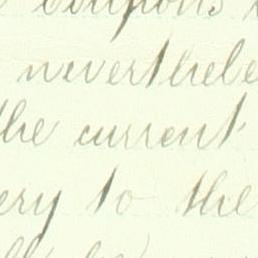 coupons
neverthele
the current
ery to the